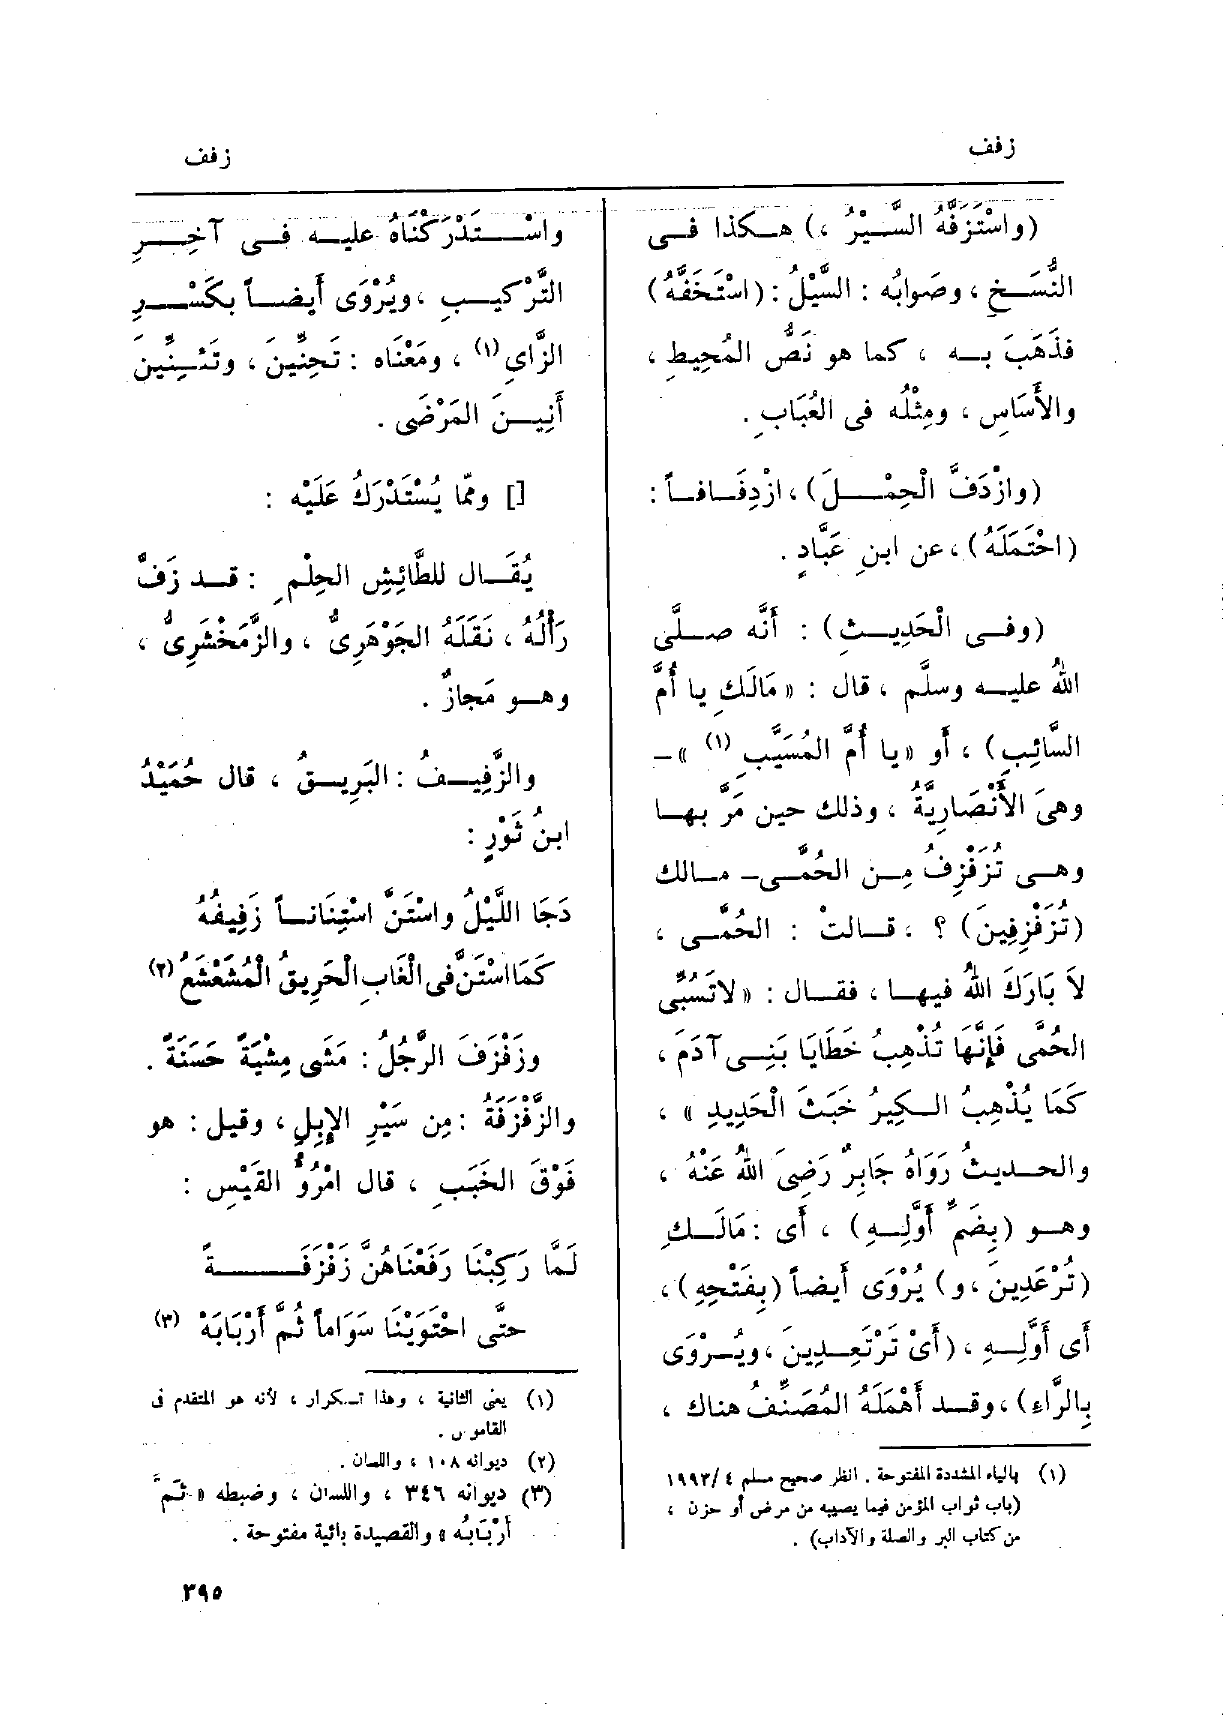 زفف
(واسْتَزَفَّهُ السَّيْرُ ،) هكذا فى
النُّسَخِ ، وصَوابُه : السَّيْلُ : (اسْتَخَفَّهُ)
فذَهَبَ به ، كما هو نَصُّ المُحِيطِ ،
والأَسَاسِ ، ومِثْلُه فى العُبَابِ .
(وازْدَفَّ الْحِمْلَ) ، ازْدِفَافاً :
(احْتَمَلَهُ) ، عن ابنِ عَبَّادٍ .
(وفى الْحَدِيثِ) : أَنَّه صلَّى
اللهُ عليه وسلَّم ، قال : «مَالَكِ يا أُمَّ
السَّائِبِ) ، أَو «يا أُمَّ المُسَيَّبِ (١) »-
وهىَ الأَنْصَارِيَّةُ ، وذلك حين مَرَّ بها
وهى تُزَفْزِفُ مِن الحُمَّى- مالك
(تُزَفْزِفِينَ) ؟ ، قالتْ : الحُمَّى ،
لاَ بَارَكَ اللهُ فيها ، فقال : «لاتَسُبِّى
الحُمَّى فَإِنَّهَا تُذْهِبُ خَطَايَا بَنِى آدَمَ ،
كَمَا يُذْهِبُ الكِيرُ خَبَثَ الْحَدِيدِ » ،
والحديثُ رَوَاهُ جَابِرٌ رَضِىَ اللهُ عَنْهُ ،
وهو (بِضَمِّ أَوَّلِهِ) ، أَى : مَالَكِ
(تُرْعَدِينَ ، و) يُرْوَى أَيضاً (بِفَتْحِهِ) ،
أَى أَوَّلِهِ ، (أَىْ تَرْتَعِدِينَ ، ويُرْوَى
بِالرَّاءِ) ، وقد أَهْمَلَهُ المُصَنِّفُ هناك ،
(١) بالياء المشددة المفتوحة . انظر صحيح مسلم ٤/١٩٩٣
(باب ثواب المؤمن فيما يصيبه من مرض أو حزن ،
من كتاب البر والصلة والآداب) .
زفف
واسْتَدْرَكْنَاهُ عليه فى آخِرِ
التَّرْكيبِ ، ويُرْوَى أَيضاً بكَسْرِ
الزَّاىِ (١) ، ومَعْنَاه : تَحِنِّينَ ، وتَئِنِّينَ
أَنِينَ المَرْضَى .
[] وممّا يُسْتَدْرَكُ عَلَيْه :
يُقَال للطَّائِشِ الحِلْمِ : قد زَفَّ
رَأْلُهُ ، نَقَلَهُ الجَوْهَرِىُّ ، والزَّمَخْشَرِىُّ ،
وهو مَجازٌ .
والزَّفِيفُ : البَرِيقُ ، قال حُمَيْدُ
ابنُ ثَوْرٍ :
دَجَا اللَّيْلُ واسْتَنَّ اسْتِنَاناً زَفِيفُهُ
كَمَا اسْتَنَّ فى الْغَابِ الْحَرِيقُ الْمُشَعْشَعُ (٢)
وزَفْزَفَ الرَّجُلُ : مَشَى مِشْيَةً حَسَنَةً .
والزَّفْزَفَةُ : مِن سَيْرِ الإِبِلِ ، وقيل : هو
فَوْقَ الخَبَبِ ، قال امْرُؤُ القَيْسِ :
لَمَّا رَكِبْنَا رَفَعْنَاهُنَّ زَفْزَفَةً
حتَّى احْتَوَيْنَا سَوَاماً ثُمَّ أَرْبَابَهْ (٣)
(١) يعنى الثانية ، وهذا تكرار ، لأنه هو المتقدم فى
القاموس .
(٢) ديوانه ١٠٨ ، واللسان .
(٣) ديوانه ٣٤٦ ، واللسان ، وضبطه « ثمَّ
أرْبَابُه » والقصيدة بائية مفتوحة .
٣٩٥